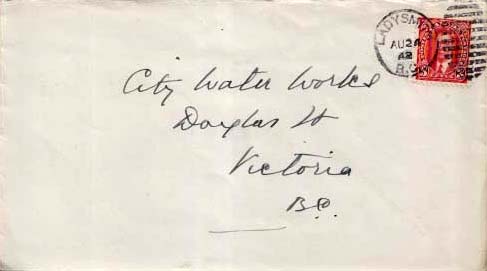 LADYSMITH
AU 24
42
B.C.
City Water Works
Douglas St
Victoria
B.C.